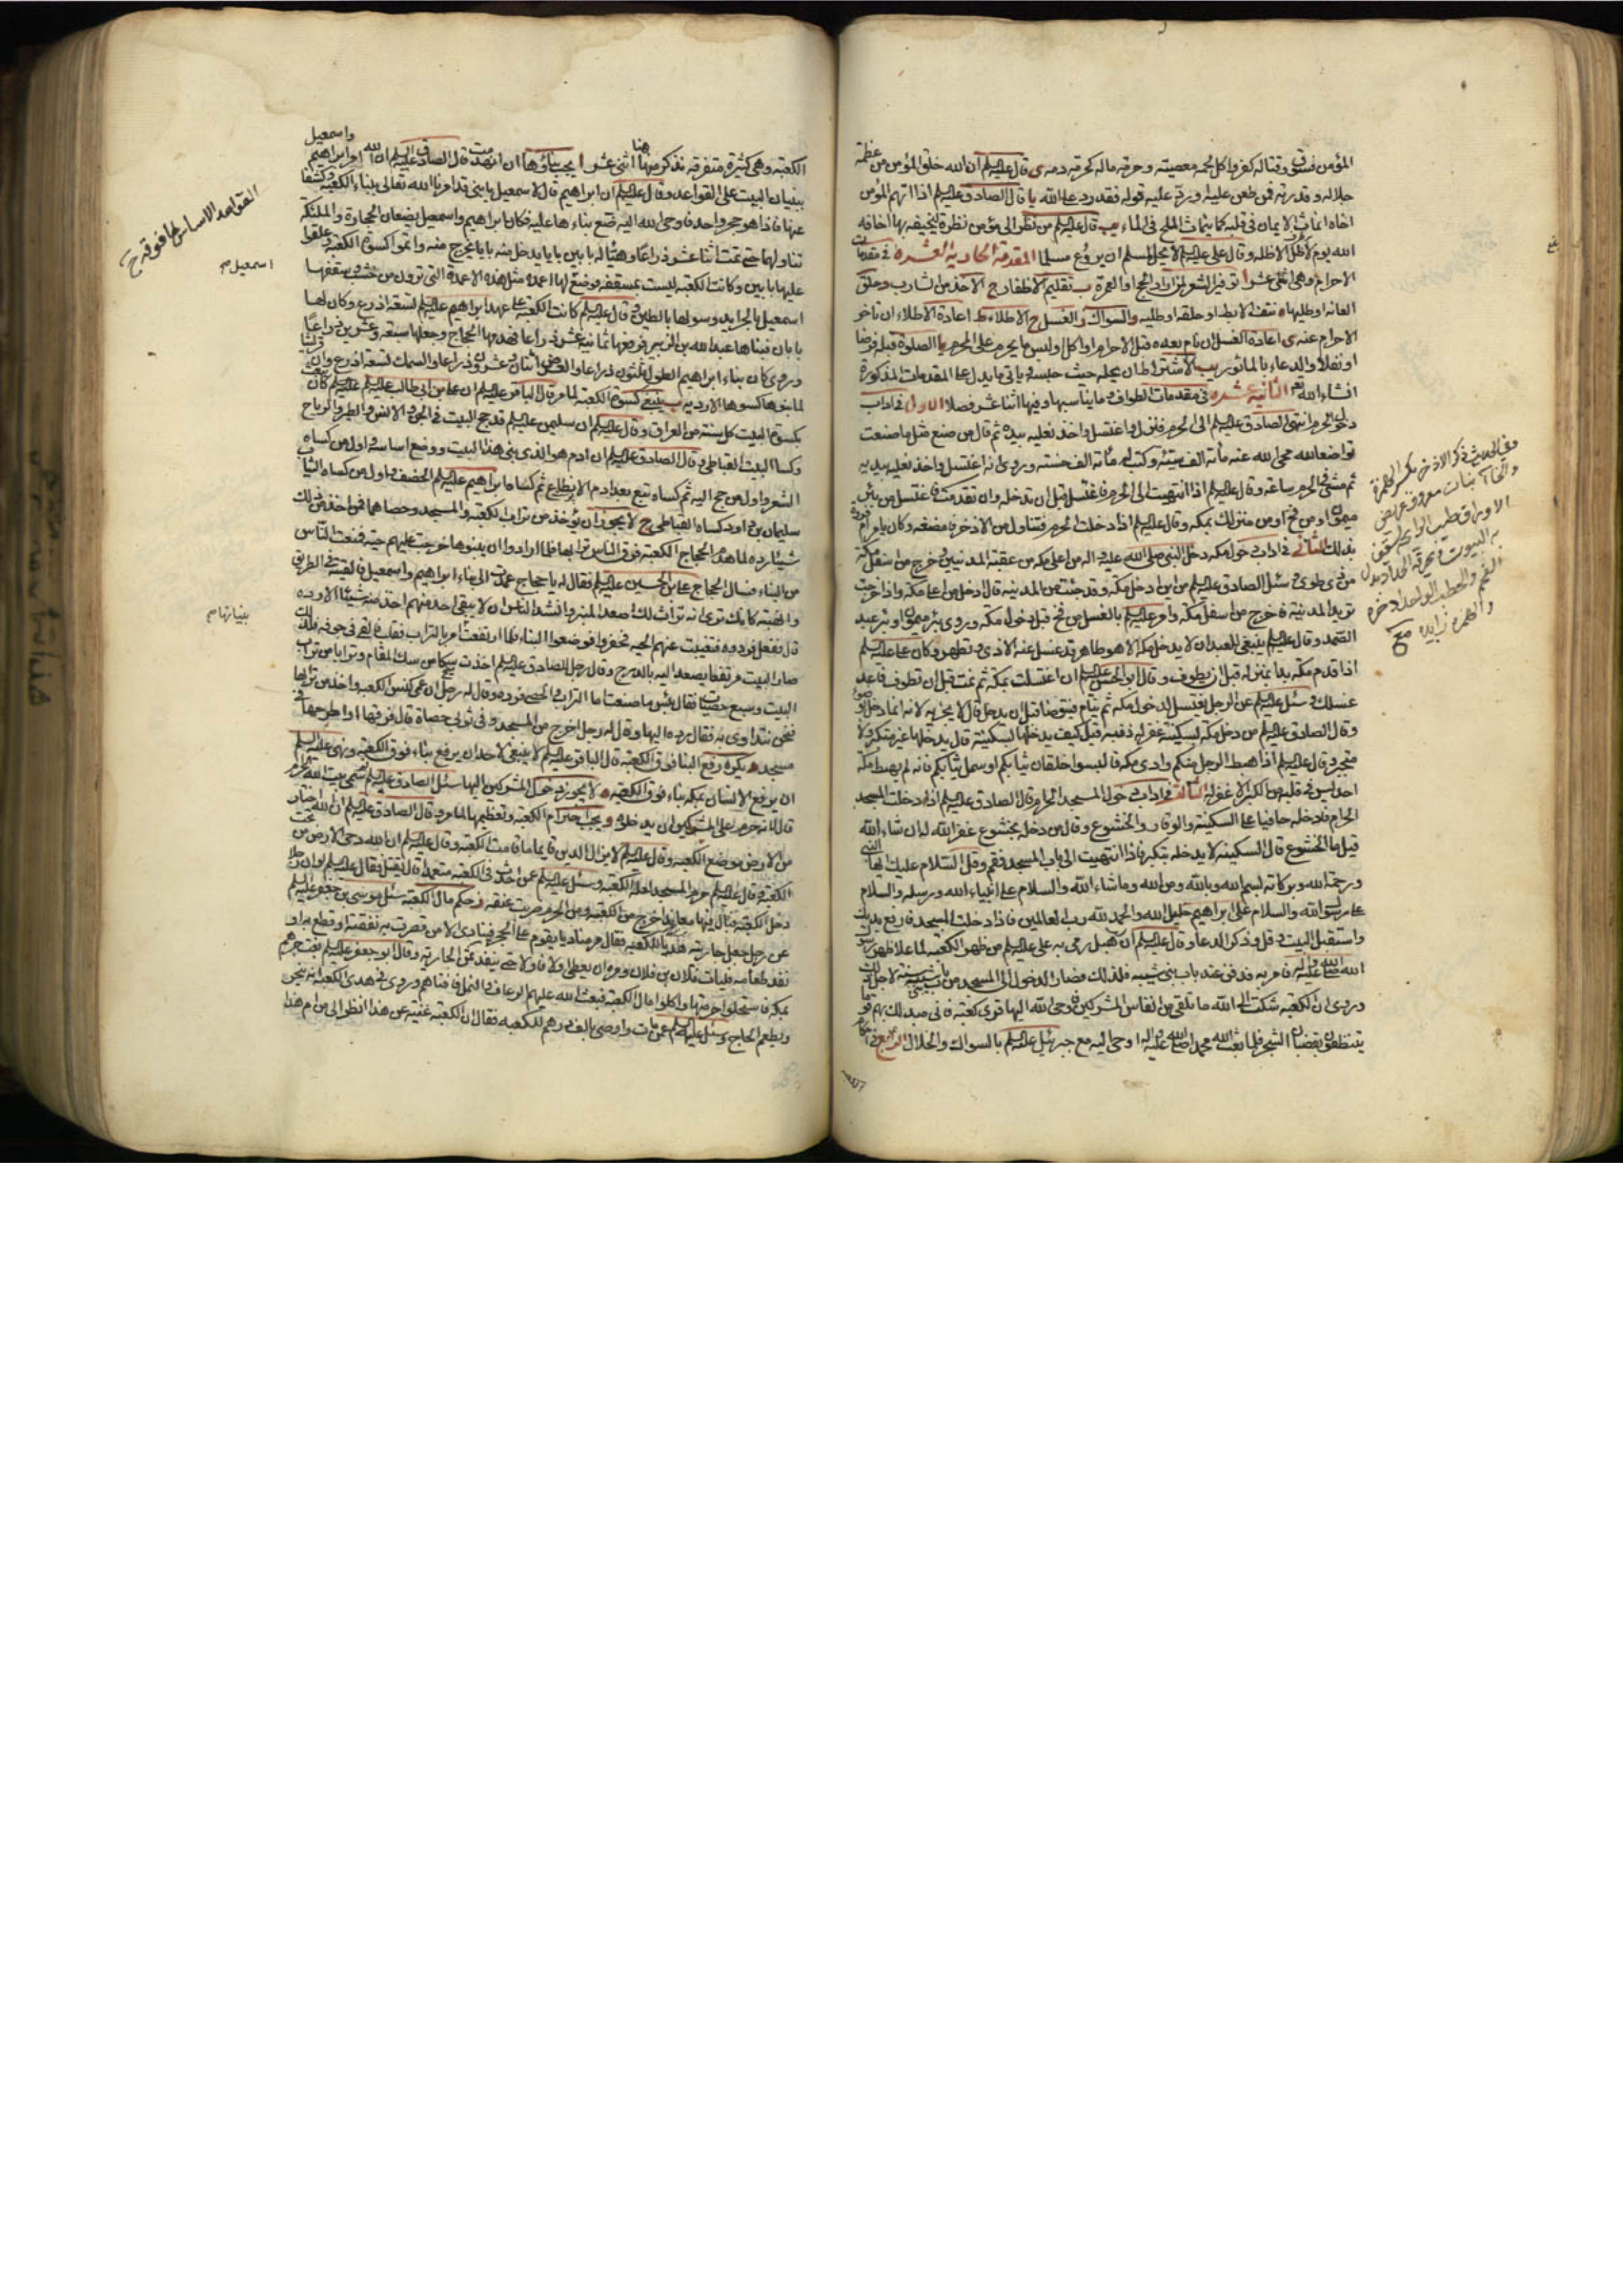 المؤمن فسوق وقتاله كفر واكل لحمه معصيته وحرمة ماله كحرمة دمه ى قال عليه السلم ان الله خلق المؤمن من عظمة
جلاله وقدرته فمن طعن عليه او رد عليه قوله فقد رد على الله يا قال الصادق عليه السلم اذا اتهم المؤمن
اخاه انماث الايمان في قلبه كما ينماث الملح في الماء يب قال عليه السلم من نظر الى مؤمن نظرة ليخيفه بها اخافه
الله يوم لا ظل الا ظله وقال على عليه السلم لا يحل لمسلم ان يروع مسلما المقدمة الحادية العشره في مقدمات
الاحرام وهى اثنى عشر ا توفير الشعر لمن اراد الحج او العمرة ب تقليم الاظفار ج الاخذ من الشارب وحلق
العانة او طليها ه نتف الابط او حلقه او طليه والسواك والغسل ح الاطلاء ط اعادة الاطلاء ان تأخر
الاحرام عنه ى اعادة الغسل ان نام بعده قبل الاحرام او اكل او لبس ما يحرم على المحرم يا الصلوة قبله فرضا
او نفلا والدعاء بالمأثور يب الاشتراط ان يحله حيث حبسه وياتى ما يدل على المقدمات المذكورة
انشاء الله تعم الثانية عشره في مقدمات الطواف وما يناسبها وفيها اثنا عشر فصلا الاول في اداب
دخول الحرم انتهى الصادق عليه السلم الى الحرم فنزل واغتسل واخذ نعليه بيده ثم قال من صنع مثل ما صنعت
تواضعا لله محى الله عنه مأة الف سيئة وكتب له مأة الف حسنة وروى انه اغتسل واخذ نعليه بيديه
ثم مشى في الحرم ساعة وقال عليه السلم اذا انتهيت الى الحرم فاغتسل قبل ان تدخله وان تقدمت فاغتسل من بئر
ميمون او من فخ او من منزلك بمكة وقال عليه السلم اذا دخلت الحرم فتناول من الاذخر فامضغه وكان يامر ام فروة
بذلك الثاني في اداب دخول مكة دخل النبي صلى الله عليه واله من اعلى مكة من عقبة المدنيين وخرج من اسفل مكة
من ذى طوى وسئل الصادق عليه السلم من اين ادخل مكة وقد جئت من المدينة قال ادخل من اعلا مكة واذا خرجت
تريد المدينة فاخرج من اسفل مكة وامر عليه السلم بالغسل من فخ قبل دخول مكة وروى بئر ميمون او بئر عبد
الصمد وقال عليه السلم ينبغي للعبد ان لا يدخل مكة الا وهو طاهر قد غسل عنه الاذى وتطهر وكان على عليه السلم
اذا قدم مكة بدا بمنزله قبل ان يطوف وقال ابو الحسن عليه السلم ان اغتسلت بمكة ثم نمت قبل ان تطوف فاعد
غسلك وسئل عليه السلم عن الرجل يغتسل لدخول مكة ثم ينام فيتوضا قبل ان يدخل قال لا يجزيه لانه انما دخل بوضوء
وقال الصادق عليه السلم من دخل مكة بسكينة غفر له ذنبه قيل كيف يدخلها بسكينة قال يدخلها غير متكبر ولا
متجبر وقال عليه السلم اذا هبط الرجل منكم وادى مكة فالبسوا خلقان ثيابكم او سمل ثيابكم فانه لم يهبط مكة
احد ليس في قلبه من الكبر الا غفر له الثالث في اداب دخول المسجد الحرام قال الصادق عليه السلم اذا دخلت المسجد
الحرام فادخله حافيا على السكينة والوقار والخشوع وقال من دخله بخشوع غفر الله له ان شاء الله
قيل ما الخشوع قال السكينة لا يدخله بتكبر فاذا انتهيت الى باب المسجد فقم وقل السلام عليك ايها النبي
ورحمة الله وبركاته بسم الله وبالله ومن الله وما شاء الله والسلام على انبياء الله ورسله والسلام
على رسول الله والسلام على ابراهيم خليل الله والحمد لله رب العالمين فاذا دخلت المسجد فارفع يديك
واستقبل البيت وقل وذكر الدعاء وقال عليه السلم ان هبل رمى به على عليه السلم من ظهر الكعبة لما علا ظهر رسول
الله صلى الله عليه واله فامر به فدفن عند باب بنى شيبه فلذلك فصار الدخول الى المسجد من باب بنى شيبة لاجل ذلك
وروى ان الكعبة شكت الى الله ما تلقى من انفاس المشركين فاوحى الله اليها قرى كعبة فانى مبدلك بهم قوما
يتنظفون بقضبان الشجر فلما بعث الله محمدا صلى الله عليه واله اوحى اليه مع جبرئيل عليه السلم بالسواك والخلال الرابع في احكام
وفي الحديث ذكر الاذخر بكسر الهمزة
والخاء نبات معروف عريض
الاوراق طيب الرائحة يسقف
به البيوت يحرقه الحداد بدل
الفحم والحطب الواحد اذخرة
والهمزة زايده مع
الكعبة وهى كثيرة متفرقة نذكر منها هنا اثنى عشر ا يجب بناؤها ان انهدمت قال الصادق عليه السلم ان الله امر ابراهيم واسمعيل
ببنيان البيت على القواعد وقال عليه السلم ان ابراهيم قال لاسمعيل يا بنى قد امرنا الله تعالى ببناء الكعبة وكشفا
عنها فاذا هو حجر واحد فاوحى الله اليه ضع بناءها عليه فكان ابراهيم واسمعيل يضعان الحجارة والملئكة
تناولهما حتى تمت اثنا عشر ذراعا وهيئا له بابين بابا يدخل منه بابا يخرج منه واتموا كسوة الكعبة وعلقوا
عليها بابين وكانت الكعبة ليست بمسقفة فوضع لها اعمدة مثل هذه الاعمدة التى ترون من خشب وسقفها
اسمعيل بالجرايد وسواها بالطين وقال عليه السلم كانت الكعبة على عهد ابراهيم عليه السلم تسعة اذرع وكان لها
بابان فبناها عبد الله بن الزبير فرفعها ثمانية عشر ذراعا فهدمها الحجاج وجعلها سبعة وعشرين ذراعا
وروى كان بناء ابراهيم الطول ثلثون ذراعا والعرض اثنان وعشرون ذراعا والسمك تسعة اذرع وان قريشا
لما بنوها كسوها الاردية ب ينبغي كسوة الكعبة لما مر قال الباقر عليه السلم ان على بن ابى طالب عليه السلم كان يبعث
بكسوة البيت كل سنة من العراق وقال عليه السلم ان سليمن عليه السلم قد حج البيت في الجن والانس والطير والرياح
وكسا البيت القباطى وقال الصادق عليه السلم ان ادم هو الذى بنى هذا البيت ووضع اساسه واول من كساه
الشعر واول من حج اليه ثم كساه تبع بعد ادم الانطاع ثم كساه ابراهيم عليه السلم الخصف واول من كساه الثياب
سليمان بن داود كساه القباطى ج لا يجوز ان يؤخذ من تراب الكعبة والمسجد وحصاهما فمن اخذ من ذلك
شيئا رده لما هدم الحجاج الكعبة فرق الناس ترابها فلما ارادوا ان يبنوها خرجت عليهم حية فمنعت الناس
من البناء فسال الحجاج على بن الحسين عليه السلم فقال له يا حجاج عمدت الى بناء ابراهيم واسمعيل فالقيته في الطريق
وانتهبته كانك ترى انه تراث لك اصعد المنبر وانشد الناس ان لا يبقى احد منهم اخذ منه شيئا الا رده
قال ففعل فردوه فتغيبت عنهم الحية فحفروا فوضعوا البناء فلما ارتفعت امر بالتراب فقلب فالقى في جوفه فلذلك
صار البيت مرتفعا يصعد اليه بالدرج وقال رجل للصادق عليه السلم اخذت سكا من سك المقام وترابا من تراب
البيت وسبع حصيات فقال بئس ما صنعت اما التراب والحصى فرده وقال له رجل ان عمى كنس الكعبة واخذ من ترابها
فنحن نتداوى به فقال رده اليها وقال له رجل اخرج من المسجد وفى ثوبى حصاة قال فردها او اطرحها في
مسجد د يكره رفع البناء فوق الكعبة قال الباقر عليه السلم لا ينبغي لاحد ان يرفع بناء فوق الكعبة ونهى عليه السلم
ان يرفع الانسان بمكة بناء فوق الكعبة ه لا يجوز دخول المشركين اليها سئل الصادق عليه السلم لم سمى بيت الله الحرام
قال لانه حرم على المشركين ان يدخلوه و يجب احترام الكعبة وتعظيمها لما مر وقال الصادق عليه السلم ان الله اختار
من الارض موضع الكعبة وقال عليه السلم لا يزال الدين قايما ما قامت الكعبة وقال عليه السلم ان الله دحى الارض من تحت
الكعبة وقال عليه السلم حرم المسجد لعلة الكعبة وسئل عليه السلم عمن احدث في الكعبة متعمدا قال يقتل وقال عليه السلم لو ان رجلا
دخل الكعبة فبال فيها معاندا اخرج من الكعبة ومن الحرم وضربت عنقه ز حكم مال الكعبة سئل موسى بن جعفر عليه السلم
عن رجل جعل جاريته هديا للكعبة فقال مر مناديا يقوم على الحجر فينادى الا من قصرت به نفقته او قطع به او
نفد طعامه فليات فلان بن فلان ومره ان يعطى اولا فاولا حتى ينفد ثمن الجارية وقال ابو جعفر عليه السلم بغت جرهم
بمكة فاستحلوا حرمتها واكلوا مال الكعبة فبعث الله عليهم الرعاف والنمل فافناهم وروى في هدى الكعبة انه ينحر
ويطعم الحاج وسئل عليه السلم عمن مات واوصى بالف درهم للكعبة فقال ان الكعبة غنية عن هذا انظر الى من ام هذا
القواعد الاساس لما فوقه ج
اسمعيل م